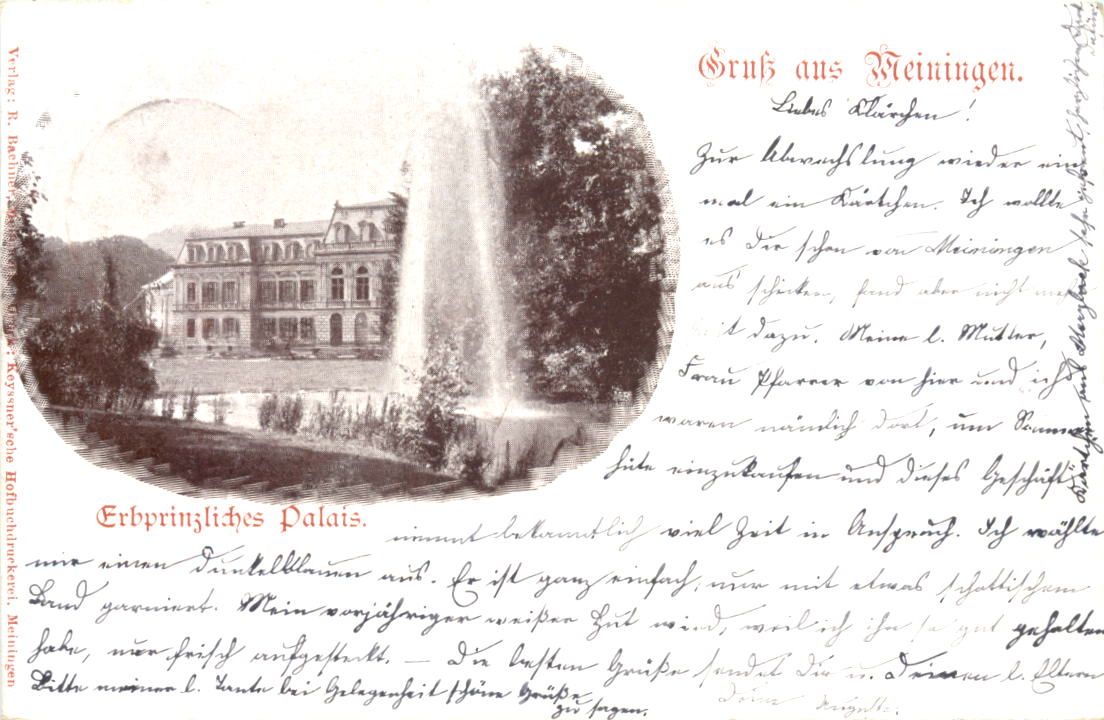 Gruß aus Meiningen.
Liebes Klärchen!
Zur Abwechslung wieder ein
mal ein Kärtchen. Ich wollte
es Dir schon von Meiningen
aus schicken, fand aber nicht mehr
Zeit dazu. Meine l. Mutter,
Frau Pfarrer von hier und ich
waren nämlich dort, um Sommer
hüte einzukaufen und dieses Geschäft
nimmt bekanntlich viel Zeit in Anspruch. Ich wählte
mir einen dunkelblauen aus. Er ist ganz einfach, nur mit etwas schottischem
Band garniert. Mein vorjähriger weißer Hut wird, weil ich ihn so gut gehalten
habe, nur frisch aufgesteckt. — Die besten Grüße sendet Dir u. Deinen l. Eltern
Deine Auguste.
Bitte meiner l. Tante bei Gelegenheit schöne Grüße
zu sagen.
Erbprinzliches Palais.
Verlag: R. Bachner Keyssner'sche Hofbuchdruckerei, Meiningen
Kärtchen mit sehr gefreut, herzlichen Dank
dafür.